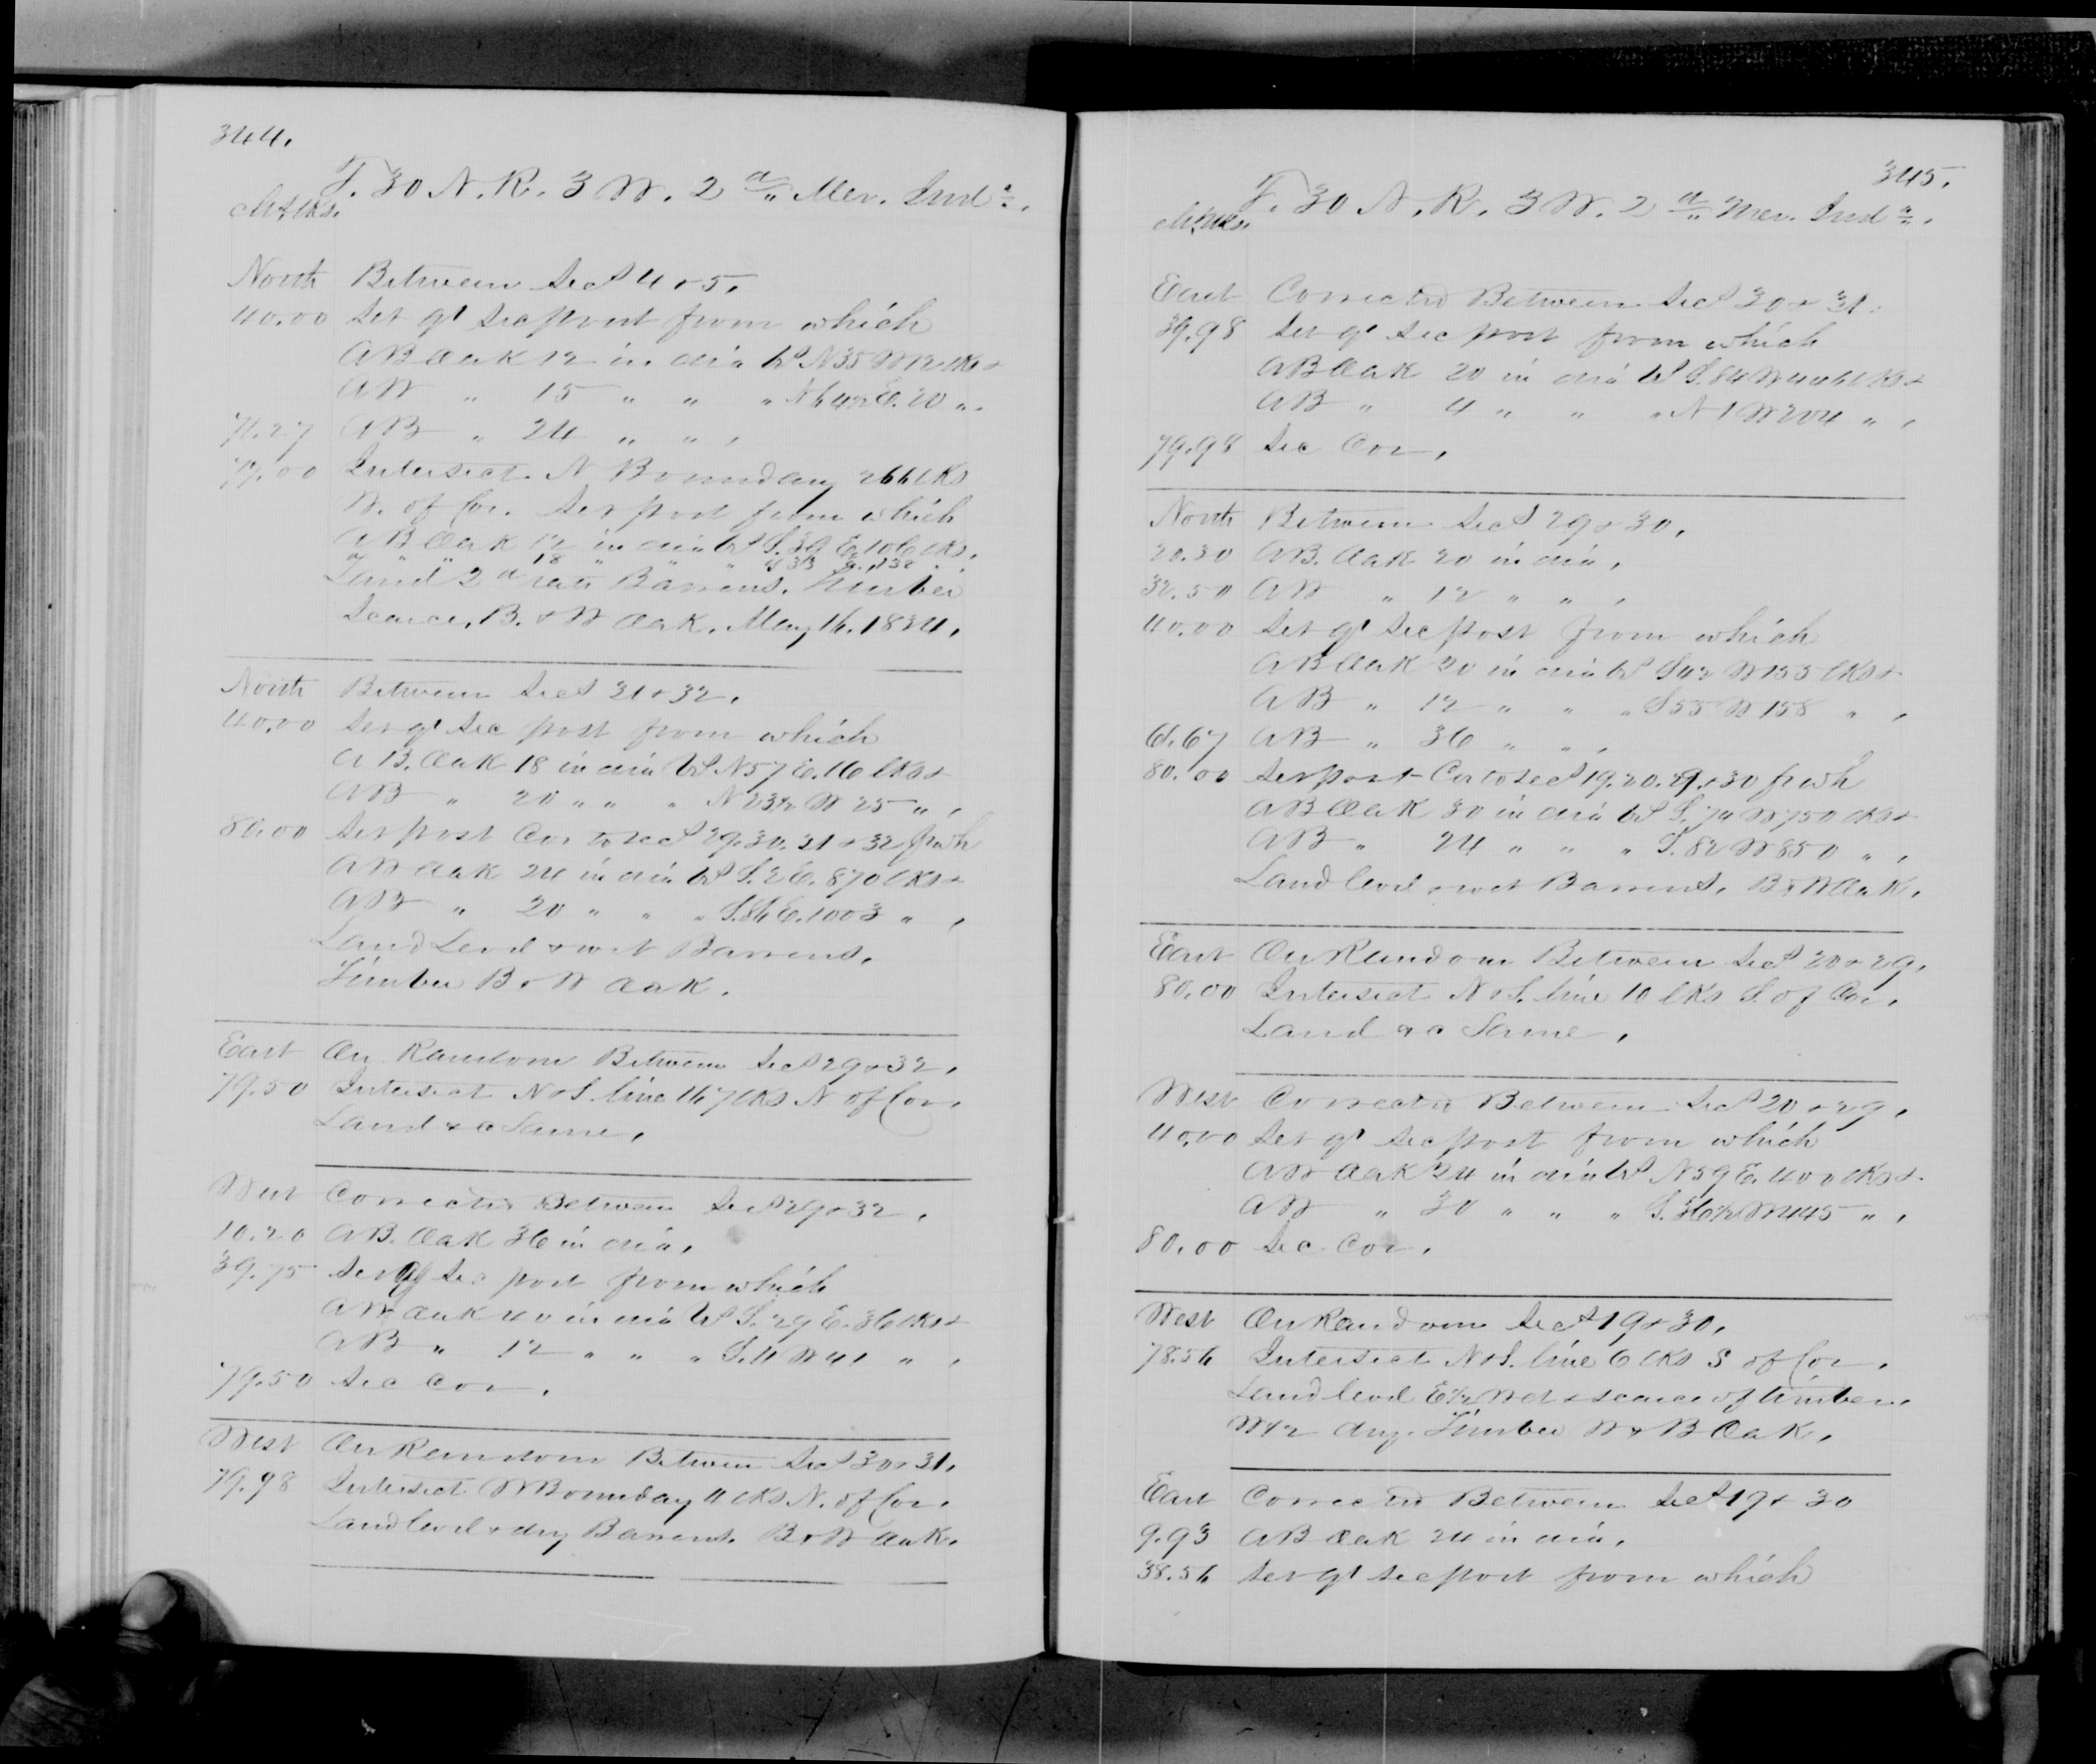 344.
T. 30 N. R. 3 W. 2d Mer. Inda.
Chs lks.
North Between Secs 4 & 5.
40.00 Set qr Sec post from which
A B Oak 12 in dia bs N 35 W 12 lks &
A W " 15 " " " N 64½ E. 20 ".
71.27 A B " 24 " ",
79.00 Intersect. N Boundary 266 lks
W. of Cor. Set post from which
A B Oak 12 in dia bs S. 39 E. 106 lks.
" " " 18 " " " S 33 138 "
Land 2d rate Barrens. Timber
Scarce, B. & W Oak. May 16. 1834.
North Between Secs 31 & 32.
40.00 Set qr Sec post from which
A B. Oak 18 in dia bs N 57 E. 16 lks &
A B " 20 " " " N 23½ W 25 ",
80.00 Set post Cor to secs 29. 30. 31 & 32 fr wh
A W Oak 24 in dia bs S. 2 E. 870 lks &
A B " 20 " " " S. 86 E. 1003 ",
Land Level & wet Barrens.
Timber B & W Oak.
East On Random Between Secs 29 & 32.
79.50 Intersect N & S. line 167 lks N of Cor.
Land &c Same.
West Corrected Between Secs 29 & 32.
10.20 A B. Oak 36 in dia.
39.75 Set qr Sec post from which
A W Oak 40 in dia bs S. 29 E. 36 lks &
A B " 12 " " " S. 11 W 41 ",
79.50 Sec Cor.
West On Random Between Secs 30 & 31.
79.98 Intersect W Boundary 11 lks N. of Cor.
Land level & dry Barrens. B & W Oak.
345.
T. 30 N. R. 3 W. 2d Mer. Inda.
Chs lks.
East Corrected Between Secs 30 & 31.
39.98 Set qr Sec post from which
A B Oak 20 in dia bs S. 84 W 406 lks &
A B " 4 " " " N 1 W 204 ",
79.98 Sec Cor.
North Between Secs 29 & 30.
20.30 A B. Oak 20 in dia.
32.50 A W " 12 " ",
40.00 Set qr Sec post from which
A B Oak 20 in dia bs S 42 W 155 lks &
A B " 12 " " " S 55 W 158 ",
61.67 A B " 36 " ",
80.00 Set post Cor to secs 19. 20. 29. & 30 fr wh
A B Oak 30 in dia bs S. 74 W 750 lks &
A B " 24 " " " S. 82 W 850 ",
Land level & wet Barrens. B & W Oak.
East On Random Between Secs 20 & 29.
80.00 Intersect N & S. line 10 lks S. of Cor.
Land &c Same.
West Corrected Between Secs 20 & 29.
40.00 Set qr Sec post from which
A W Oak 24 in dia bs N 59 E. 400 lks &
A W " 30 " " " S. 36½ W 445 ",
80.00 Sec Cor.
West On Random Secs 19 & 30.
78.56 Intersect N & S. line 6 lks S of Cor.
Land level E ½ Wet & scarce of timber.
W ½ dry. Timber W & B Oak.
East Corrected Between Secs 19 & 30
9.93 A B Oak 24 in dia.
38.56 Set qr Sec post from which